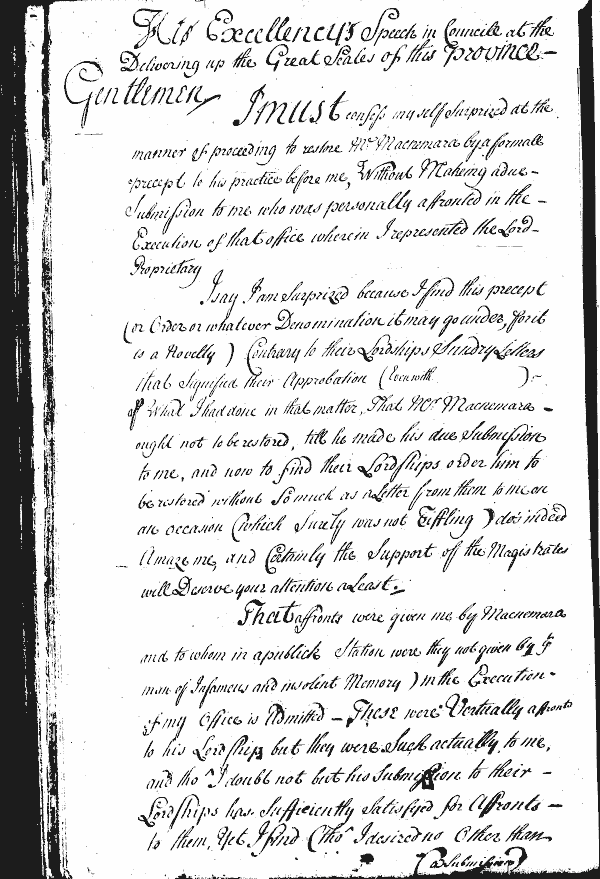 His Excellencys Speech in Councile at the
Delivering up the Great Seales of this Province.—
Gentlemen
I must confess my self Surprized at the
manner of proceeding to restore Mr. Macnemara by a formall
precept to his practice before me, Without Making a due—
Submission to me who was personally affronted in the—
Execution of that office wherein I represented the Lord—
Proprietary
I say I am Surprized because I find this precept
(or Order or whatever Denomination it may go under, for it
is a Novelly) Contrary to their Lordships Sundry Letters
that Signified their Approbation (Even with ):
of What I had done in that matter, That Mr. Macnemara—
ought not to be restored, till he made his due Submission
to me, and now to find their Lordships order him to
be restored without So much as a Letter from them to me on
an occasion (which Surely was not Tiffling) do's indeed
Amaze me, and Certainly the Support of the Magistrates
will Deserve your attention a Least.
That affronts were given me by Macnemara
and to whom in a publick Station were they not given by yt
man of Infamous and insolent Memory) in the Execution—
of my Office is Admitted — These were Vertually affronts
to his Lordship but they were Such actually, to me,
and tho' I doubt not but his Submission to their—
Lordships has Sufficiently Satisfyed for Affronts—
to them, Yet I find (tho' I desired no Other than
(a Submission)